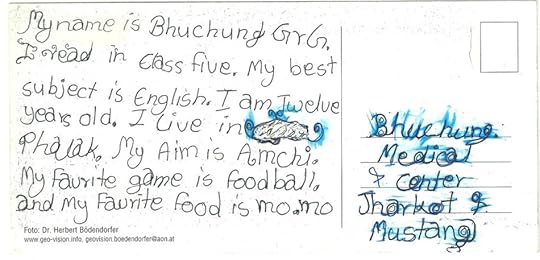 My name is Bhuchung GrG.
I read in Class five. My best
subject is English. I am Twelve
years old. I Live in
Phalak. My Aim is Amchi.
My Faurite game is foodball.
and My Faurite Food is mo.mo
Foto: Dr. Herbert Bödendorfer
www.geo-vision.info, geovision.boedendorfer@aon.at
Bhuchung
Medical
& Center
Jharkot &
Mustang